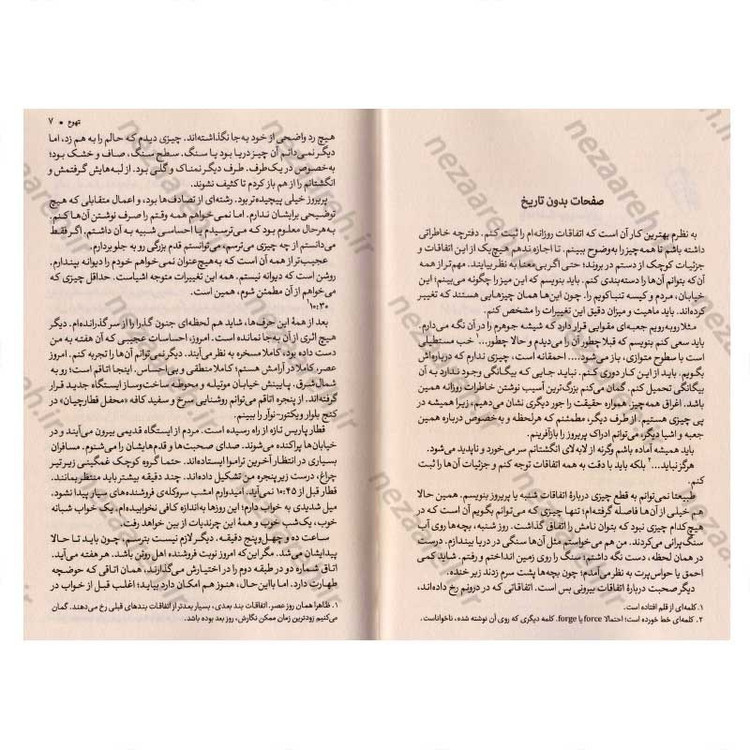 صفحات بدون تاریخ
به نظرم بهترین کار آن است که اتفاقات روزانه‌ام را ثبت کنم. دفترچه خاطراتی
داشته باشم تا همه‌چیز را به‌وضوح ببینم. تا اجازه ندهم هیچ‌یک از این اتفاقات و
جزئیات کوچک از دستم در بروند؛ حتی اگر بی‌معنا به نظر بیایند. مهم‌تر از همه
آن که بتوانم آن‌ها را دسته‌بندی کنم. باید بنویسم که این میز را چگونه می‌بینم؛ این
خیابان، مردم و کیسه تنباکویم را. چون این‌ها همان چیزهایی هستند که تغییر
کرده‌اند. باید ماهیت و میزان دقیق این تغییرات را مشخص کنم.
مثلا روبه‌رویم جعبه‌ای مقوایی قرار دارد که شیشه جوهرم را در آن نگه می‌دارم.
باید سعی کنم بنویسم که قبلا چطور آن را می‌دیدم و حالا چطور... خب مستطیلی
است با سطوح متوازی، باز می‌شود.... احمقانه است، چیزی ندارم که درباره‌اش
بگویم. باید از این کار دوری کنم. نباید جایی که بیگانگی وجود ندارد به آن
بیگانگی تحمیل کنم. گمان می‌کنم بزرگ‌ترین آسیب نوشتن خاطرات روزانه همین
باشد. اغراق همه‌چیز. همواره حقیقت را جور دیگری نشان می‌دهیم، زیرا همیشه در
پی چیزی هستیم. از طرف دیگر، مطمئنم که هرلحظه و به‌خصوص درباره همین
جعبه و اشیا دیگر، می‌توانم ادراک پریروز را بازآفرینم.
باید همیشه آماده باشم وگرنه از لابه‌لای انگشتانم سر می‌خورد و ناپدید می‌شود.
هرگز نباید...۲ بلکه باید با دقت به همه اتفاقات توجه کنم و جزئیات آن‌ها را ثبت
کنم.
طبیعتا نمی‌توانم به قطع چیزی دربارهٔ اتفاقات شنبه یا پریروز بنویسم. همین حالا
هم خیلی از آن‌ها فاصله گرفته‌ام؛ تنها چیزی که می‌توانم بگویم آن است که در
هیچ‌کدام چیزی نبود که بتوان نامش را اتفاق گذاشت. روز شنبه، بچه‌ها روی آب
سنگ‌پرانی می‌کردند. من هم می‌خواستم مثل آن‌ها سنگی در دریا بیندازم. درست
در همان لحظه، دست نگه داشتم، سنگ را روی زمین انداختم و رفتم. شاید کمی
احمق یا حواس‌پرت به نظر می‌آمدم؛ چون بچه‌ها پشت سرم زدند زیر خنده.
دیگر صحبت درباره اتفاقات بیرونی بس است. اتفاقاتی که در درونم رخ داده‌اند،
۱. کلمه‌ای از قلم افتاده است.
۲. کلمه‌ای خط خورده است؛ احتمالا force یا forge. کلمه دیگری که روی آن نوشته شده، ناخواناست.
تهوع ▪ ۷
هیچ رد واضحی از خود به‌جا نگذاشته‌اند. چیزی دیدم که حالم را به هم زد، اما
دیگر نمی‌دانم آن چیز دریا بود یا سنگ. سطح سنگ، صاف و خشک بود؛
به‌خصوص در یک‌طرف. طرف دیگر نمناک و گلی بود. از لبه‌هایش گرفتمش و
انگشتانم را از هم باز کردم تا کثیف نشوند.
پریروز خیلی پیچیده‌تر بود. رشته‌ای از تصادف‌ها بود، و اعمال متقابلی که هیچ
توضیحی برایشان ندارم. اما نمی‌خواهم همه وقتم را صرف نوشتن آن‌ها کنم.
به‌هرحال معلوم بود که می‌ترسیدم یا احساسی شبیه به آن داشتم. اگر فقط
می‌دانستم از چه چیزی می‌ترسم، می‌توانستم قدم بزرگی رو به جلو بردارم.
عجیب‌تر از همه آن است که به‌هیچ‌عنوان نمی‌خواهم خودم را دیوانه بپندارم.
روشن است که دیوانه نیستم. همه این تغییرات متوجه اشیاست. حداقل چیزی که
می‌خواهم از آن مطمئن شوم، همین است.
۱۰:۳۰
بعد از همهٔ این حرف‌ها، شاید هم لحظه‌ای جنون گذرا را از سر گذرانده‌ام. دیگر
هیچ اثری از آن به‌جا نمانده است. امروز، احساسات عجیبی که آن هفته به من
دست داده بود، کاملا مسخره به نظر می‌آیند. دیگر نمی‌توانم آن‌ها را تجربه کنم. امروز
عصر، کاملا در آرامش هستم؛ کاملا منطقی و بی‌احساس. اینجا اتاقم است؛ رو به
شمال‌شرق. پایینش خیابان موتیله و محوطه ساخت‌وساز ایستگاه جدید قرار
گرفته‌اند. از پنجره اتاقم می‌توانم روشنایی سرخ و سفید کافه «محفل قطارچیان» در
کنج بلوار ویکتور-نوآر را ببینم.
قطار پاریس تازه از راه رسیده است. مردم از ایستگاه قدیمی بیرون می‌آیند و در
خیابان‌ها پراکنده می‌شوند. صدای صحبت‌ها و قدم‌هایشان را می‌شنوم. مسافران
بسیاری در انتظار آخرین تراموا ایستاده‌اند. حتما گروه کوچک غمگینی زیر تیر
چراغ، درست زیر پنجره من تشکیل داده‌اند. چند دقیقه بیشتر باید منتظر بمانند.
قطار قبل از ۱۰:۴۵ نمی‌آید. امیدوارم امشب سروکله‌ی فروشنده‌های سیار پیدا نشود.
میل شدیدی به خواب دارم؛ این روزها به‌اندازه کافی نخوابیده‌ام. یک خواب شبانه
خوب، یک شب خوب و همهٔ این چرندیات از بین خواهد رفت.
ساعت ده و چهل‌وپنج دقیقه. دیگر لازم نیست بترسم، چون باید تا حالا
پیدایشان می‌شد. مگر این‌که امروز نوبت فروشنده اهل روئن باشد. هر هفته می‌آید.
اتاق شماره دو در طبقه دوم را در اختیارش می‌گذارند، همان اتاقی که حوضچه
طهارت دارد. اما بااین‌حال، هنوز هم امکان دارد بیاید؛ اغلب قبل از خواب در
۱. ظاهرا همان روز عصر. اتفاقات بند بعدی، بسیار بعدتر از اتفاقات بندهای قبلی رخ می‌دهند. گمان
می‌کنیم زودترین زمان ممکن نگارش، روز بعد بوده باشد.
nezaareh.ir